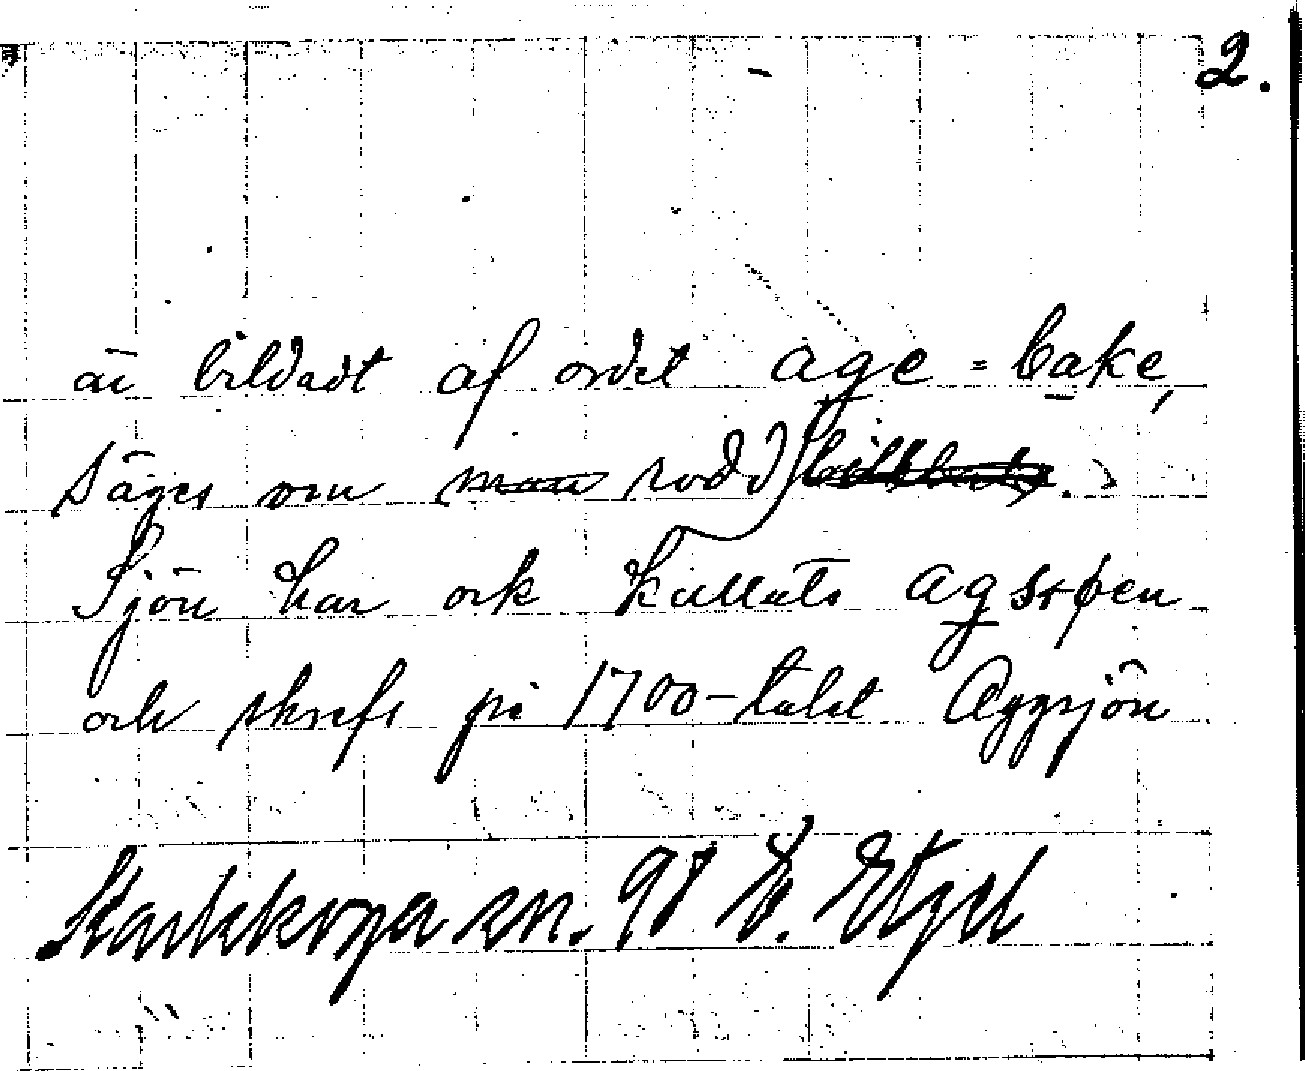 2.
är bildadt af ordet age = bake,
säges om man rodd
Sjön har ock kallats agsspen
och skrefs på 1700-talet Aggsjön